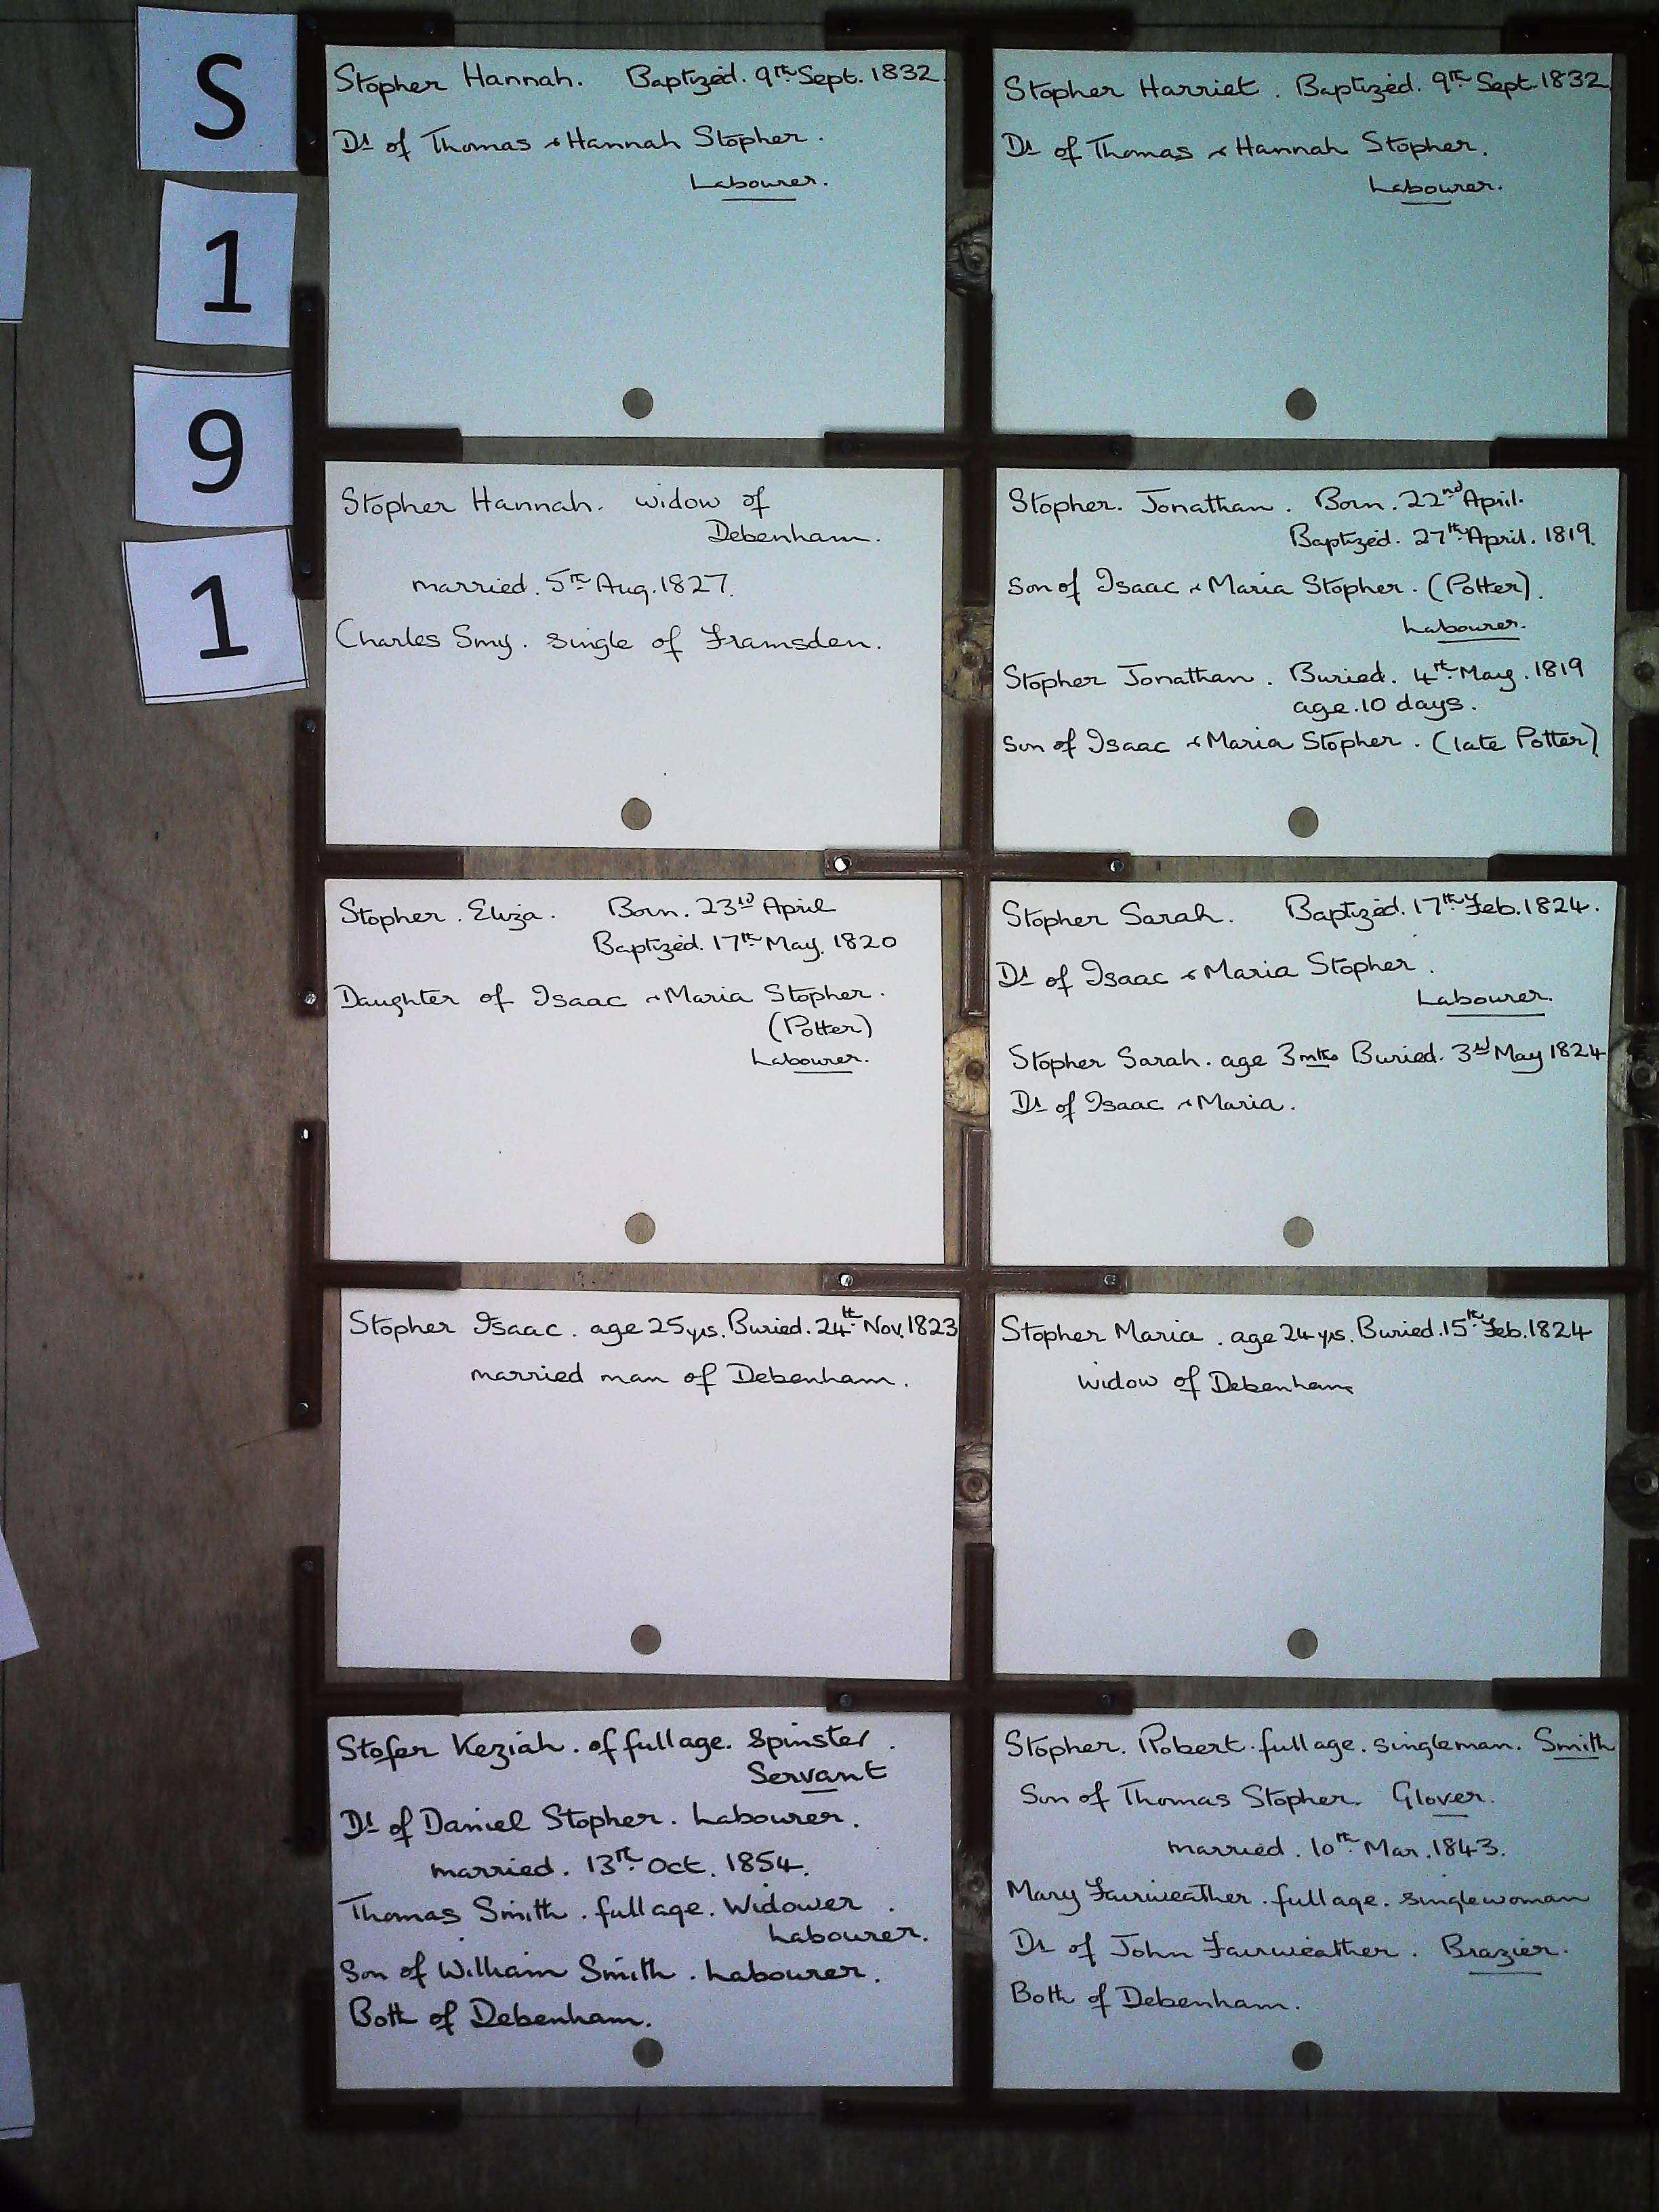 S
1
9
1
Stopher Hannah. Baptized. 9th Sept. 1832.
Dr of Thomas & Hannah Stopher.
Labourer.
Stopher Harriet. Baptized. 9th Sept. 1832
Dr of Thomas & Hannah Stopher.
Labourer.
Stopher Hannah. widow of
Debenham.
married. 5th Aug. 1827.
Charles Smy. single of Framsden.
Stopher. Jonathan. Born. 22nd April.
Baptized. 27th April. 1819.
Son of Isaac & Maria Stopher. (Potter).
Labourer.
Stopher Jonathan. Buried. 4th May. 1819
age. 10 days.
Son of Isaac & Maria Stopher. (late Potter)
Stopher. Eliza. Born. 23rd April
Baptized. 17th May. 1820
Daughter of Isaac & Maria Stopher.
(Potter)
Labourer.
Stopher Sarah. Baptized. 17th Feb. 1824.
Dr of Isaac & Maria Stopher.
Labourer.
Stopher Sarah. age 3 mths Buried. 3rd May 1824
Dr of Isaac & Maria.
Stopher Isaac. age 25 yrs. Buried. 24th Nov. 1823
married man of Debenham.
Stopher Maria. age 24 yrs. Buried. 15th Feb. 1824
widow of Debenham
Stofer Keziah. of full age. Spinster.
Servant
Dr of Daniel Stopher. Labourer.
married. 13th Oct. 1854.
Thomas Smith. full age. Widower.
Labourer.
Son of William Smith. Labourer.
Both of Debenham.
Stopher. Robert. full age. singleman. Smith
Son of Thomas Stopher. Glover.
married. 10th Mar. 1843.
Mary Fairweather. full age. singlewoman
Dr of John Fairweather. Brazier.
Both of Debenham.